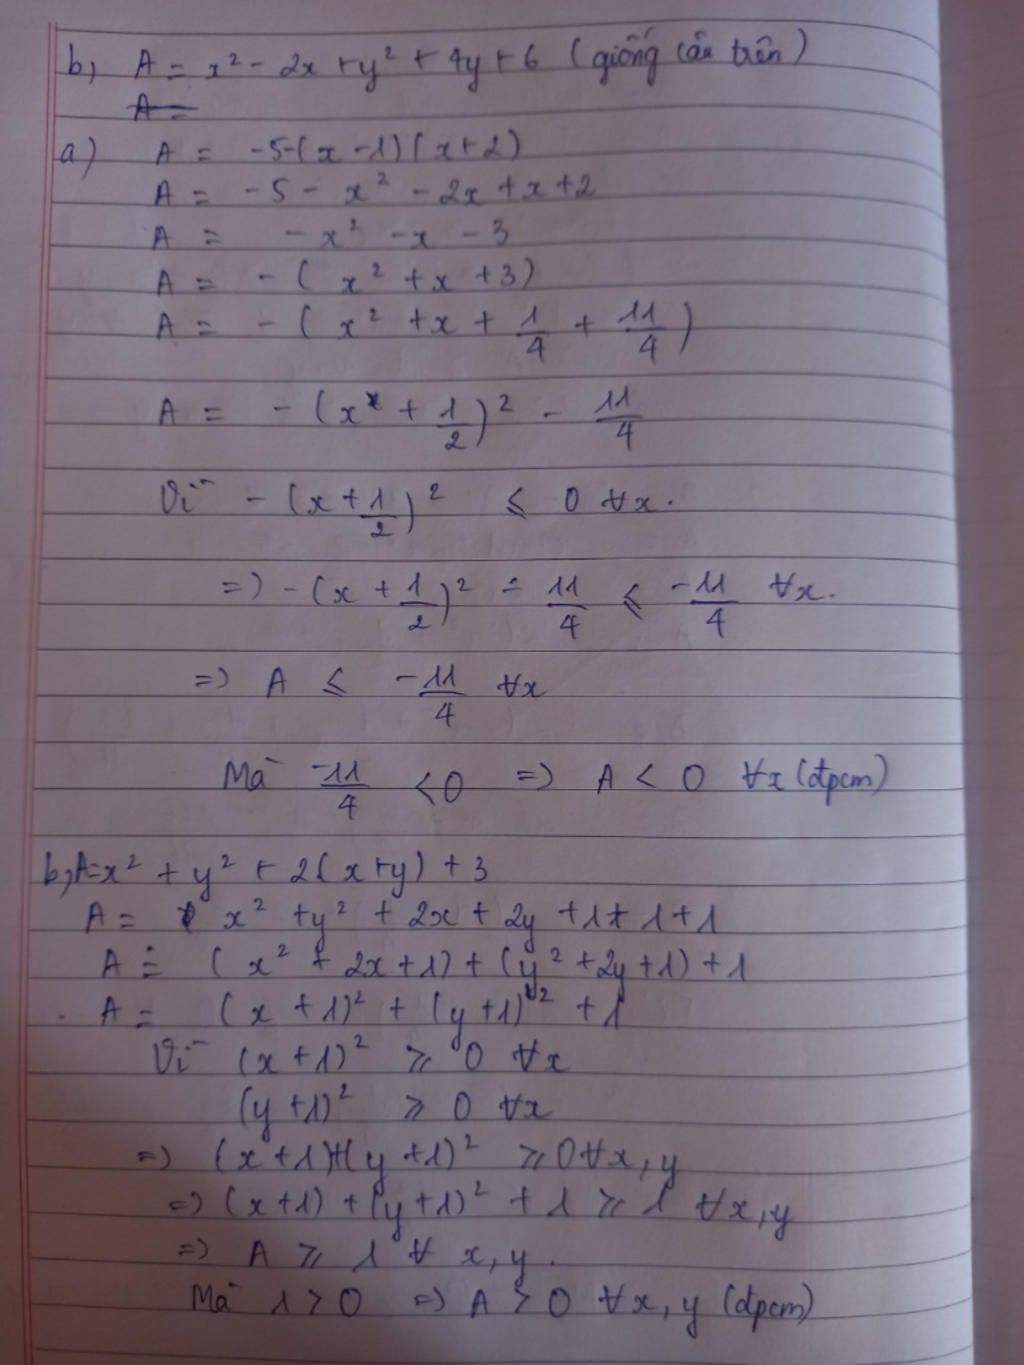 b, A = x² - 2x + y² + 4y + 6 (giống câu trên)
A =
a) A = -5-(x-1)(x+2)
A = -5 - x² - 2x + x + 2
A = - x² - x - 3
A = - ( x² + x + 3)
A = - ( x² + x + 1/4 + 11/4 )
A = - (x + 1/2)² - 11/4
Vì - (x + 1/2)² ≤ 0 ∀x.
=) - (x + 1/2)² - 11/4 ≤ -11/4 ∀x.
=) A ≤ -11/4 ∀x
Mà -11/4 < 0 =) A < 0 ∀x (đpcm)
b, A= x² + y² + 2(x+y) + 3
A = x² + y² + 2x + 2y + 1 + 1 + 1
A = ( x² + 2x + 1) + (y² + 2y + 1) + 1
A = (x + 1)² + (y + 1)² + 1
Vì (x + 1)² ≥ 0 ∀x
(y + 1)² ≥ 0 ∀x
=) (x + 1)+(y + 1)² ≥ 0 ∀x, y
=) (x + 1) + (y + 1)² + 1 ≥ 1 ∀x, y
=) A ≥ 1 ∀ x, y.
Mà 1 > 0 =) A > 0 ∀x, y (đpcm)